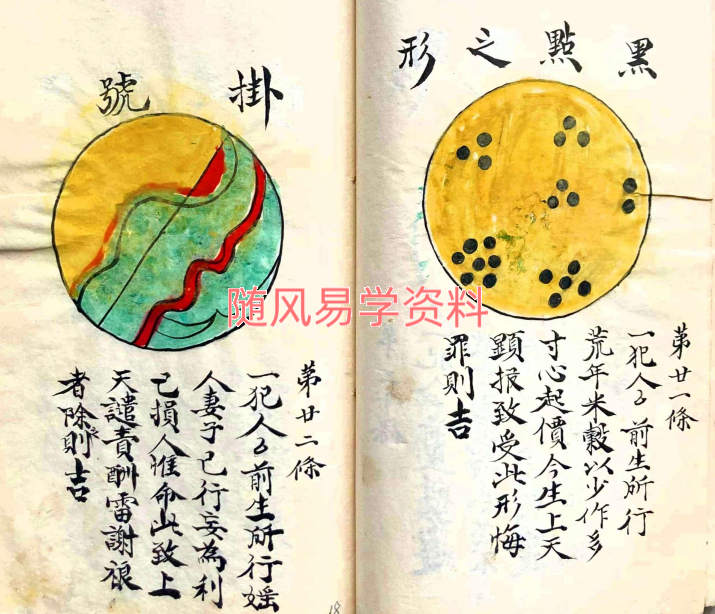 黑點之形
第廿一條
一犯人之前生所行
荒年米穀以少作多
寸心起價今生上天
顕报致受此形悔
罪則吉
掛號
第廿二條
一犯人之前生所行婬
人妻子己行妄為利
己損人惟命此致上
天譴責酬雷謝禳
者除則吉
随风易学资料
18